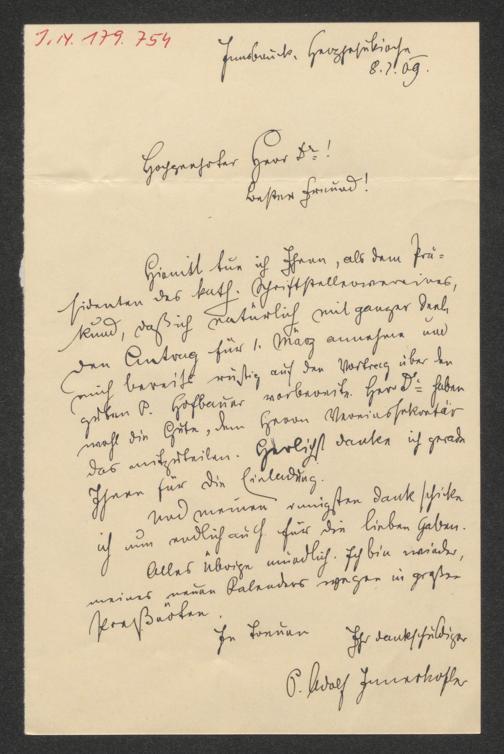 J.N. 179.754
Innsbruck, Herzjesukirche
8.2.09.
Hochgeehrter Herr Dr!
Bester Freund!
Hiemit tue ich Ihnen, als dem Prä-
sidenten des kath. Schriftstellervereines,
kund, daß ich natürlich mit ganzer Seele
den Antrag für 1. März annehme und
mich bereits rüstig auf den Vortrag über den
guten P. Hofbauer vorbereite. Herr Dr haben
wohl die Güte, dem Herrn Vereinssekretär
das mitzuteilen. Herzlichst danke ich gerade
Ihnen für die Einladung.
Und meinen innigsten Dank schicke
ich nun endlich auch für die lieben Gaben.
Alles übrige mündlich. Ich bin wieder,
meines neuen Kalenders wegen in großen
Preßnöten.
In Treuen Ihr dankschuldiger
P. Adolf Innerkofler